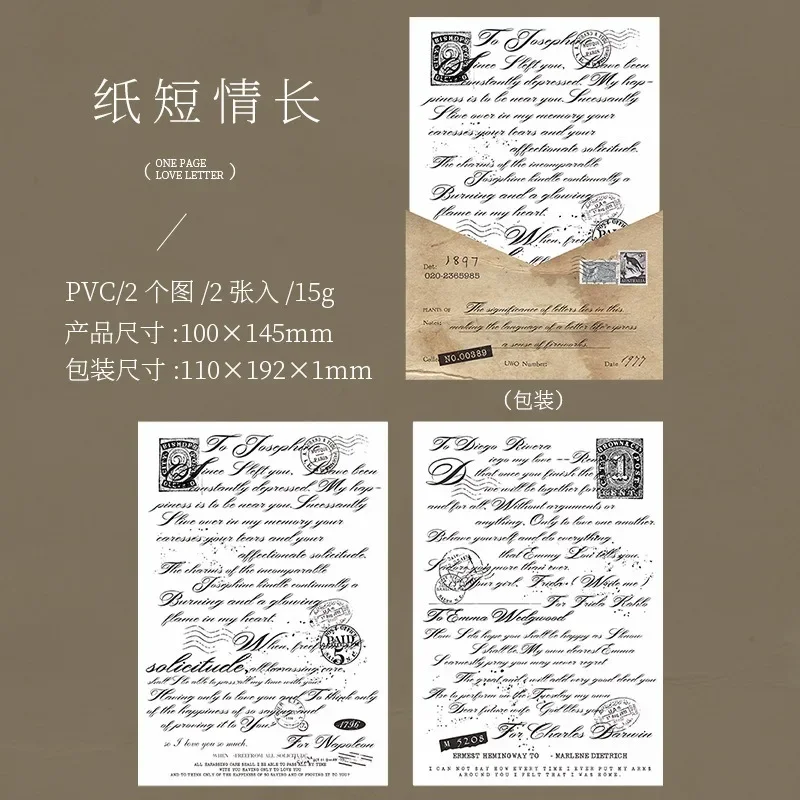 纸短情长
( ONE PAGE
LOVE LETTER )
PVC/2 个图 /2 张入 /15g
产品尺寸 :100×145mm
包装尺寸 :110×192×1mm
To Josephine
Since I left you, I have been
constantly depressed. My hap-
piness is to be near you. Sucessantly
I live over in my memory your
caresses your tears and your
affectionate solicitude.
The charms of the incomparable
Josephine kindle continually a
Burning and a glowing
flame in my heart.
When, free
PAID
Det: 1897
020-2365985
AUSTRALIA
PLANTS OF The significance of letters lies in this.
Notes: making the language of a letter life express
a sense of fireworks.
Colle NO.00389 UWO Number: Date 1977
(包装)
To Josephine
Since I left you, I have been
constantly depressed. My hap-
piness is to be near you. Sucessantly
I live over in my memory your
caresses your tears and your
affectionate solicitude.
The charms of the incomparable
Josephine kindle continually a
Burning and a glowing
flame in my heart.
When, free
PAID
5
solicitude, all harassing care,
shall I be able to pass all my time with you?
Having only to love you and To think only
of the happiness of so saying and
of proving it to You?
1796
so I love you so much. For Napoleon
WHEN -FREEFROM ALL SOLICITUDE
ALL HARASSING CARE SHALL I BE ABLE TO PASS ALL MY TIME
WITH YOU HAVING ONLY TO LOVE YOU
AND TO THINK ONLY OF THE HAPPINESS OF SO SAYING AND OF PROVING IT TO YOU?
To Diego Rivera
Diego my love ---Rem
that once you finish the
we will be together for
and for all, Without arguments or
anything, Only to love one another.
Behave yourself and do everything
that Emmy Lou tells you.
I adore you more than ever.
Your girl, Frida ( Write me )
For Frida Kahlo
To Emma Wedgwood
How I do hope you shall be happy as I know
I shall be. My own dearest Emma
I earnestly pray you may never regret
The great and i will add very good deed you
Are to perform on the Tuesday my own
Dear future wife God bless you
For Charles Darwin
M 5208
ERNEST HEMINGWAY TO -MARLENE DIETRICH
I CAN NOT SAY HOW EVERY TIME I EVER PUT MY ARMS
AROUND YOU I FELT THAT I WAS HOME.